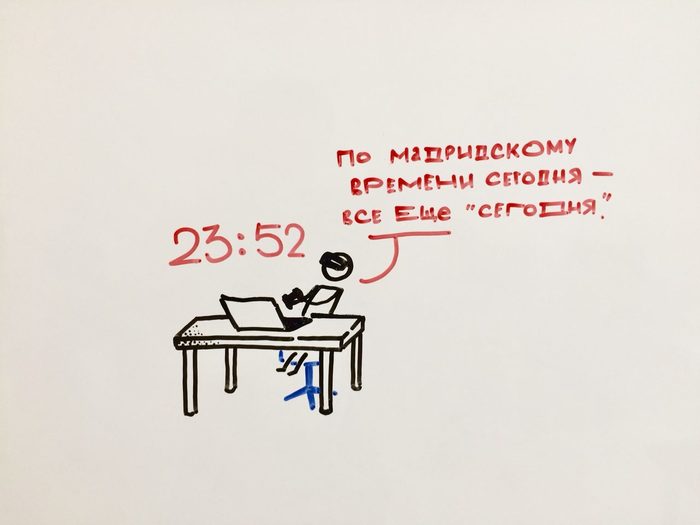 23:52
По мадридскому
времени сегодня —
все еще "сегодня".